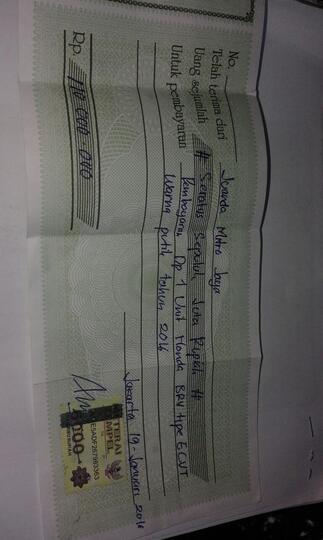 No.
Telah terima dari Juanda Mitra Jaya
Uang sejumlah # Seratus Sepuluh Juta Rupiah #
Untuk pembayaran Pembayaran Dp 1 Unit Honda BRV tipe E CVT
Warna putih tahun 2016
Jakarta 19-Januari 2016
Rp. 110 000 000
METERAI
TEMPEL